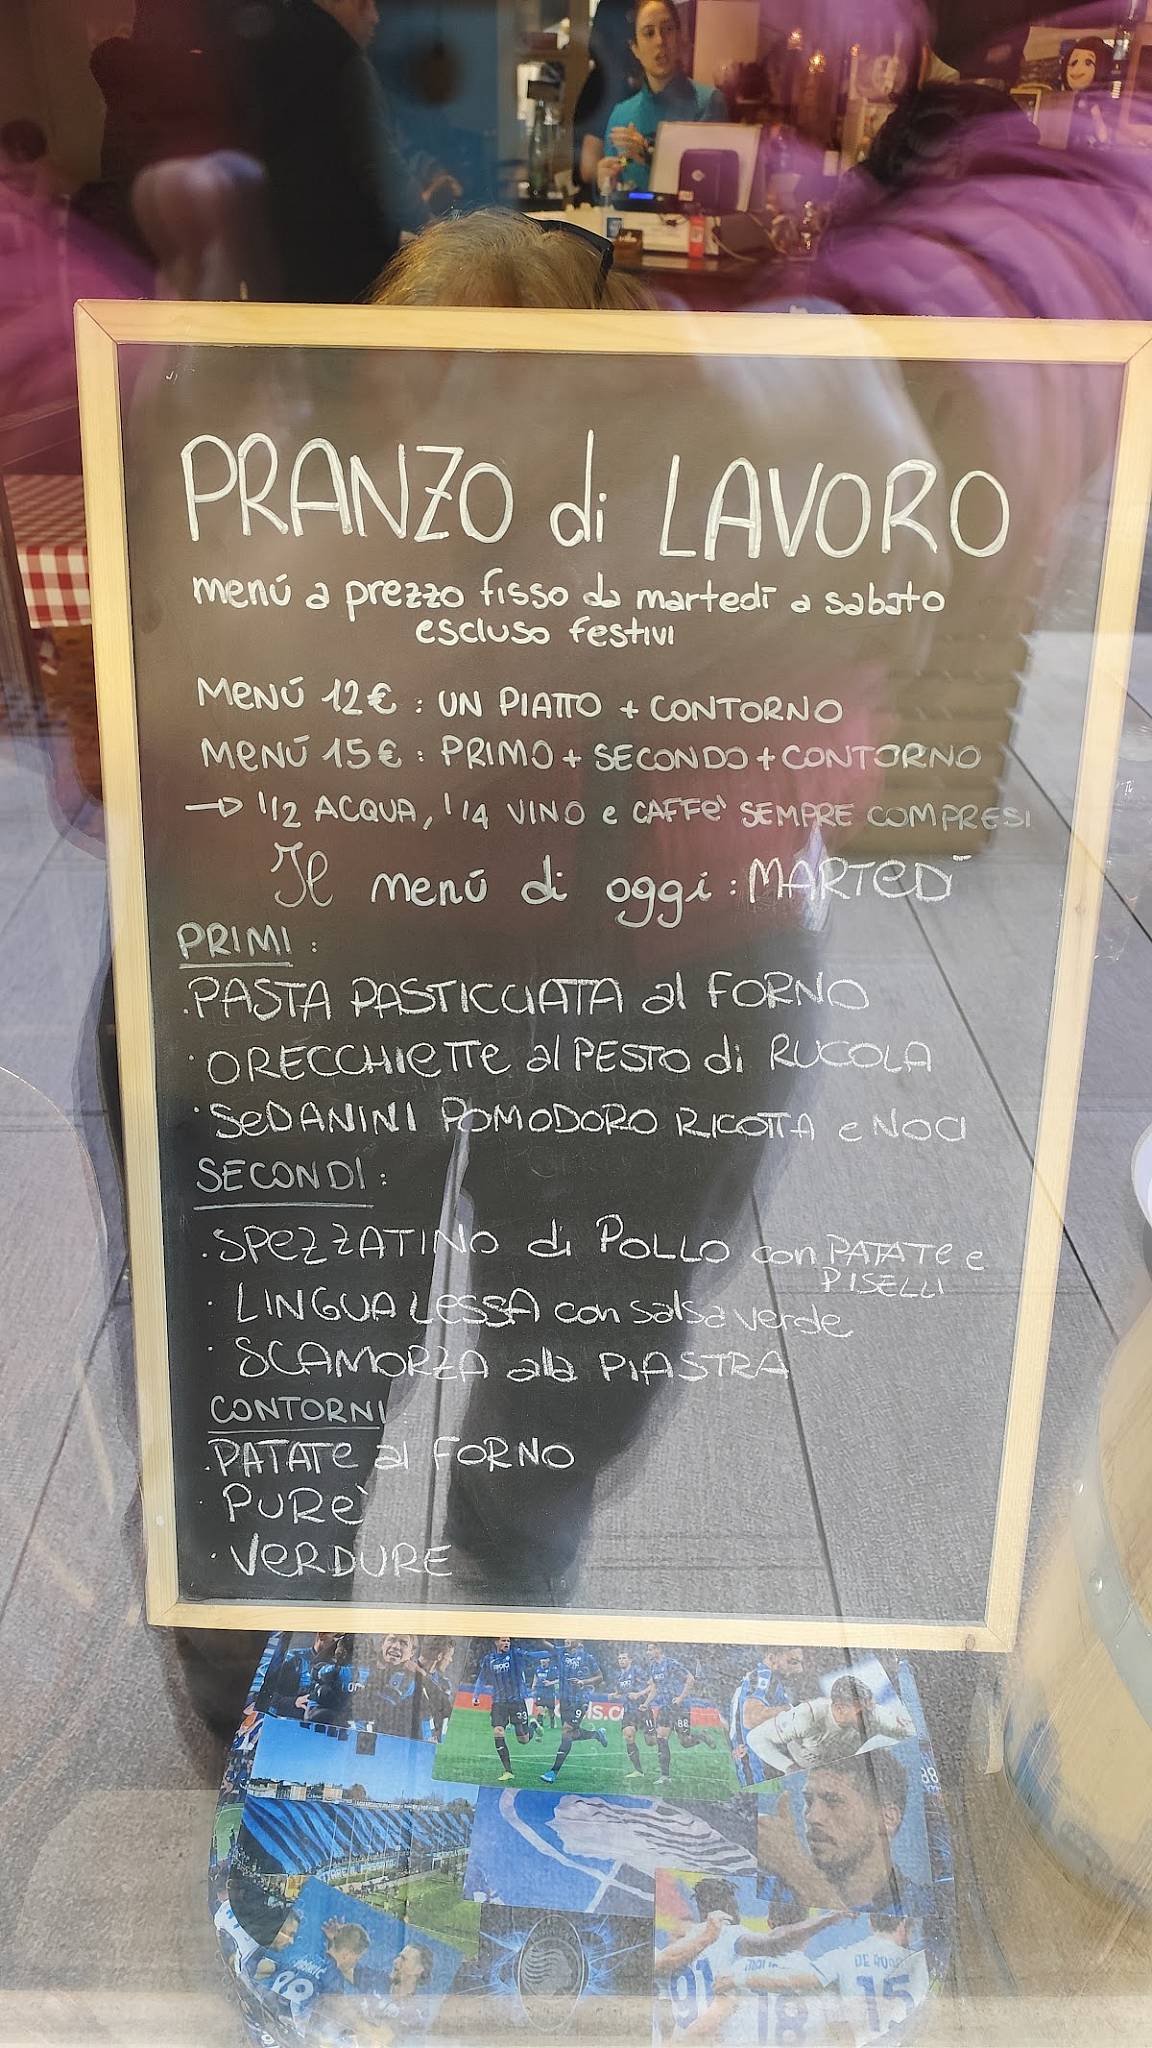 PRANZO di LAVORO
menú a prezzo fisso da martedì a sabato
escluso festivi
MENÚ 12€ : UN PIATTO + CONTORNO
MENÚ 15€ : PRIMO + SECONDO + CONTORNO
→ 1/2 ACQUA, 1/4 VINO e CAFFE' SEMPRE COMPRESI
Il menú di oggi : MARTEDÌ
PRIMI :
· PASTA PASTICCIATA al FORNO
· ORECCHIETTE al PESTO di RUCOLA
· SEDANINI POMODORO RICOTTA e NOCI
SECONDI :
· SPEZZATINO di POLLO con PATATE e
PISELLI
· LINGUA LESSA con salsa verde
· SCAMORZA alla PIASTRA
CONTORNI
· PATATE al FORNO
· PURE'
· VERDURE
33
9
11
88
88
91
18
15